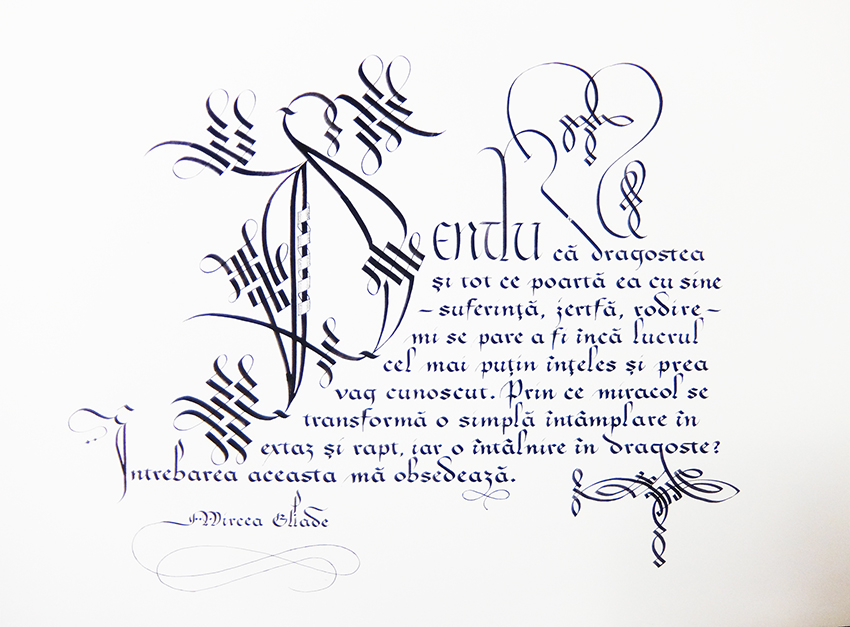 Pentru că dragostea
și tot ce poartă ea cu sine
– suferință, jertfă, rodire –
mi se pare a fi încă lucrul
cel mai puțin înțeles și prea
vag cunoscut. Prin ce miracol se
transformă o simplă întâmplare în
extaz și rapt, iar o întâlnire în dragoste?
Întrebarea aceasta mă obsedează.
Mircea Eliade